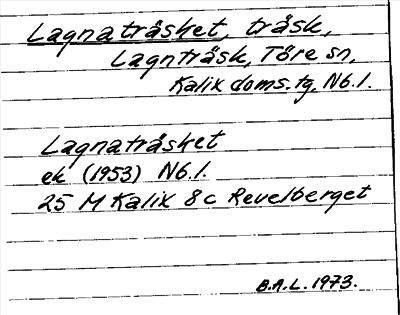 Lagnaträsket, träsk,
Lagnträsk, Töre sn,
Kalix doms. tg, Nb. l.
Lagnaträsket
ek (1953) Nb. l.
25 M Kalix 8 c Revelberget
B.A.L. 1973.